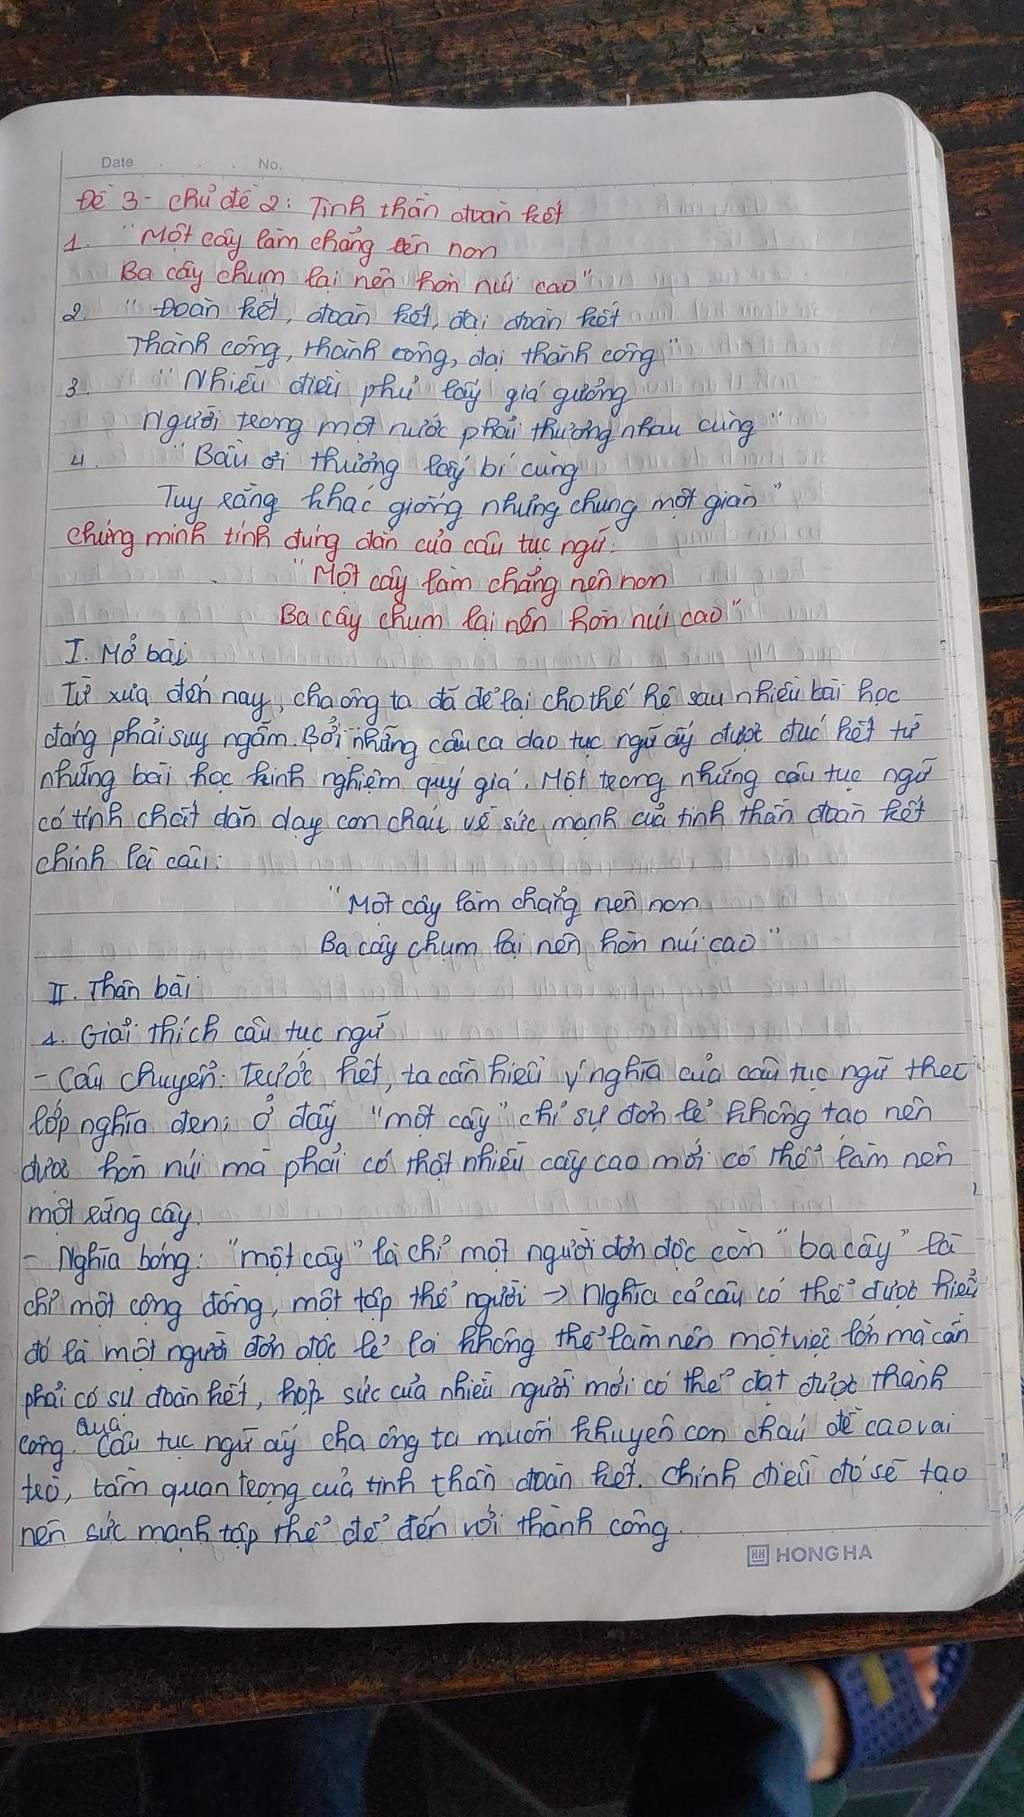 Date . . . No.
Đề 3 - chủ đề 2: Tinh thần đoàn kết
1. "Một cây làm chẳng nên non
Ba cây chụm lại nên hòn núi cao"
2. "Đoàn kết, đoàn kết, đại đoàn kết
Thành công, thành công, đại thành công"
3. "Nhiễu điều phủ lấy giá gương
Người trong một nước phải thương nhau cùng"
4. "Bầu ơi thương lấy bí cùng
Tuy rằng khác giống nhưng chung một giàn"
chứng minh tính đúng đắn của câu tục ngữ:
"Một cây làm chẳng nên non
Ba cây chụm lại nên hòn núi cao"
I. Mở bài
Từ xưa đến nay, cha ông ta đã để lại cho thế hệ sau nhiều bài học
đáng phải suy ngẫm. Bởi những câu ca dao tục ngữ ấy được đúc kết từ
những bài học kinh nghiệm quý giá. Một trong những câu tục ngữ
có tính chất dăn dạy con cháu về sức mạnh của tinh thần đoàn kết
chính là câu:
"Một cây làm chẳng nên non
Ba cây chụm lại nên hòn núi cao"
II. Thân bài
1. Giải thích câu tục ngữ
- Câu chuyển: Trước hết, ta cần hiểu ý nghĩa của câu tục ngữ theo
lớp nghĩa đen; ở đấy "một cây" chỉ sự đơn lẻ không tạo nên
được hòn núi mà phải có thật nhiều cây cao mới có thể làm nên
một rừng cây.
- Nghĩa bóng: "một cây" là chỉ một người đơn độc còn "ba cây" là
chỉ một cộng đồng, một tập thể người → Nghĩa cả câu có thể được hiểu
đó là một người đơn độc lẻ loi không thể làm nên một việc lớn mà cần
phải có sự đoàn kết, hợp sức của nhiều người mới có thể đạt được thành
công. Qua câu tục ngữ ấy cha ông ta muốn khuyên con cháu đề cao vai
trò, tầm quan trọng của tinh thần đoàn kết. Chính điều đó sẽ tạo
nên sức mạnh tập thể để đến với thành công.
HH HONG HA